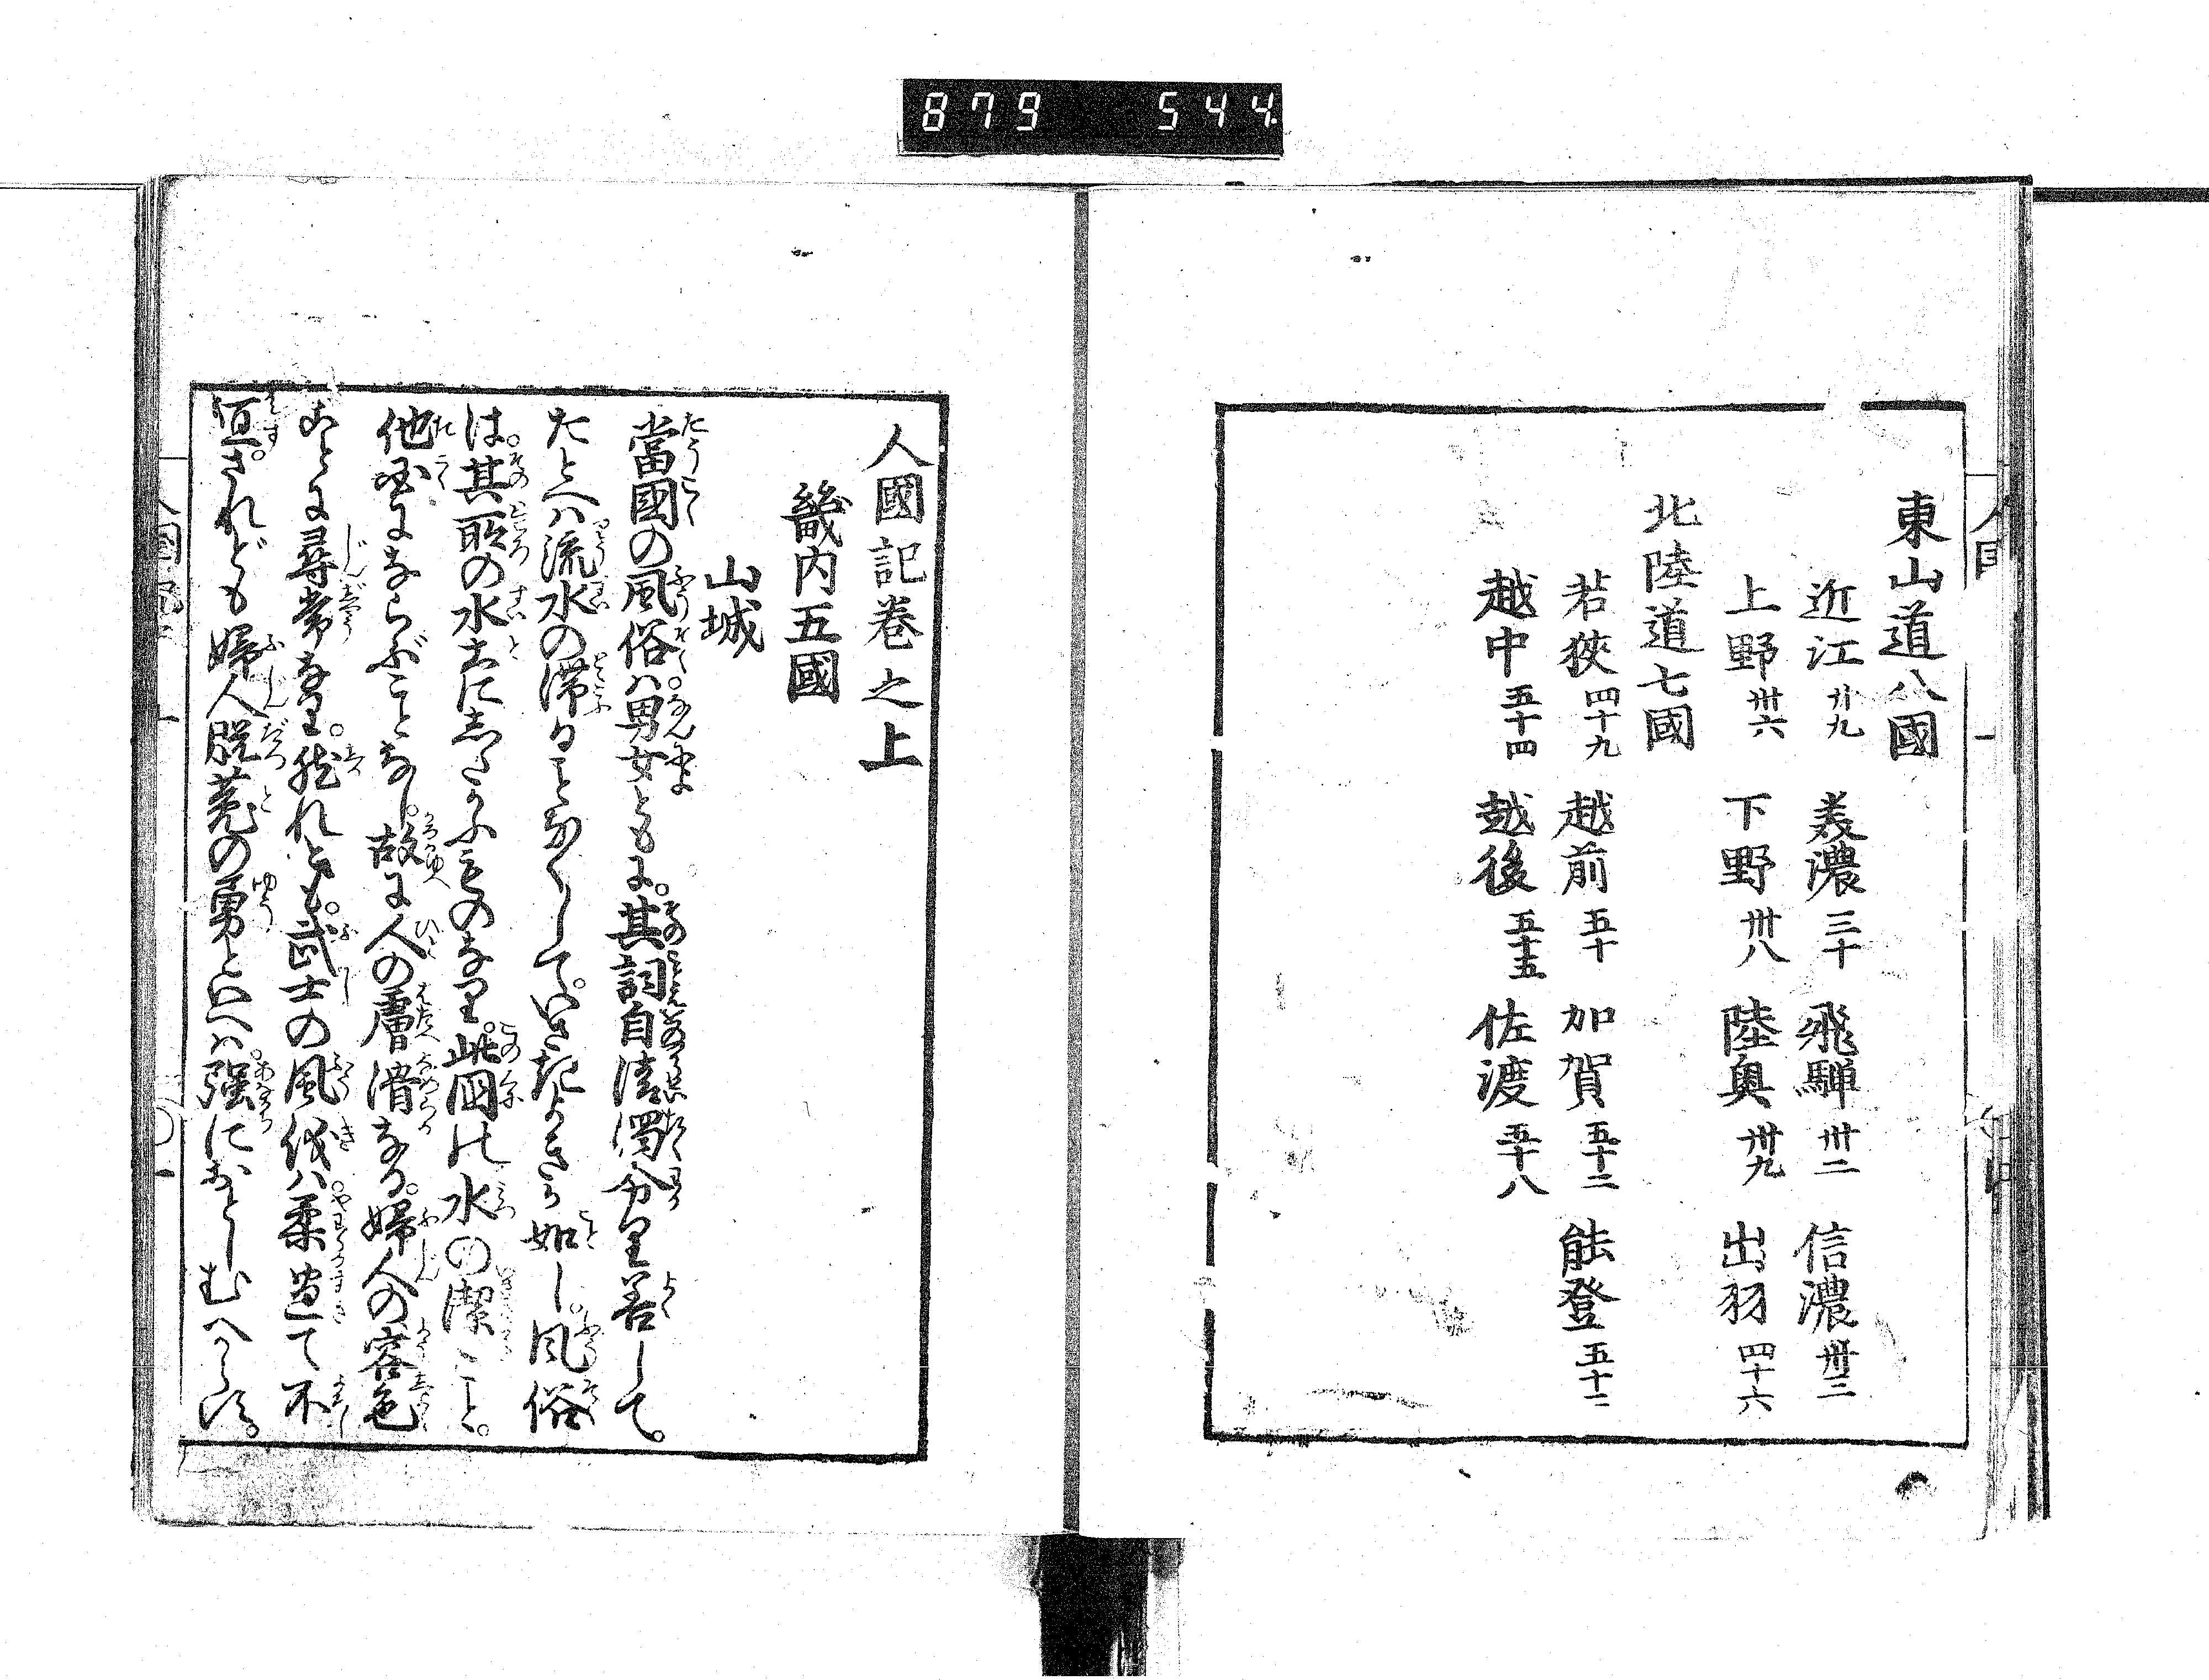 879 544
東山道八國
近江 廿九 美濃 三十 飛騨 卅二 信濃 卅三
上野 卅六 下野 卅八 陸奥 卅九 出羽 四十六
北陸道七國
若狹 四十九 越前 五十 加賀 五十二 能登 五十二
越中 五十四 越後 五十五 佐渡 五十八
人國記巻之上
畿内五國
山城
當國の風俗ハ男女ともに。其詞自清濁分里善して。
たとへハ流水の滞ることなくして。いさぎよきが如し。風俗
は。其所の水土にしたがふものなり。此国の水の潔こと。
他国にならぶことなし。故に人の膚滑なる。婦人の容色
ことに尋常なり。然れども。武士の風俗ハ。柔過て不
宜。されども婦人脱兎の勇といへハ。強におとしむへからず。